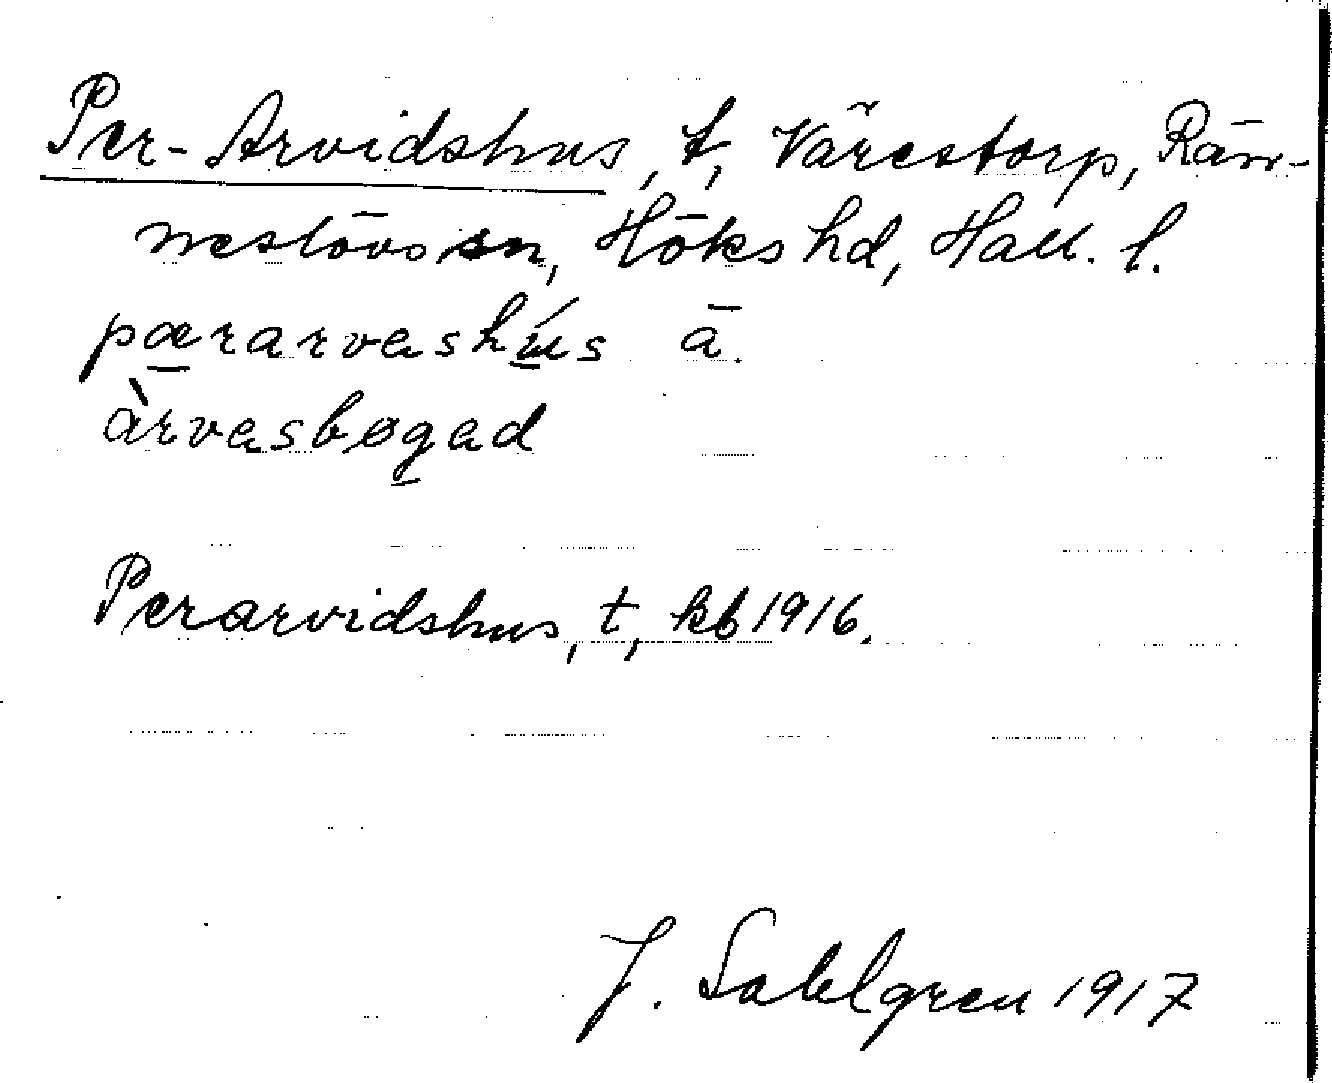 Per-Arvidshus, t, Värestorp, Rän-
neslövs sn, Höks hd, Hall. l.
pærarvashús ä.
àrvasbøgad
Perarvidshus, t, kb 1916.
J. Sahlgren 1917